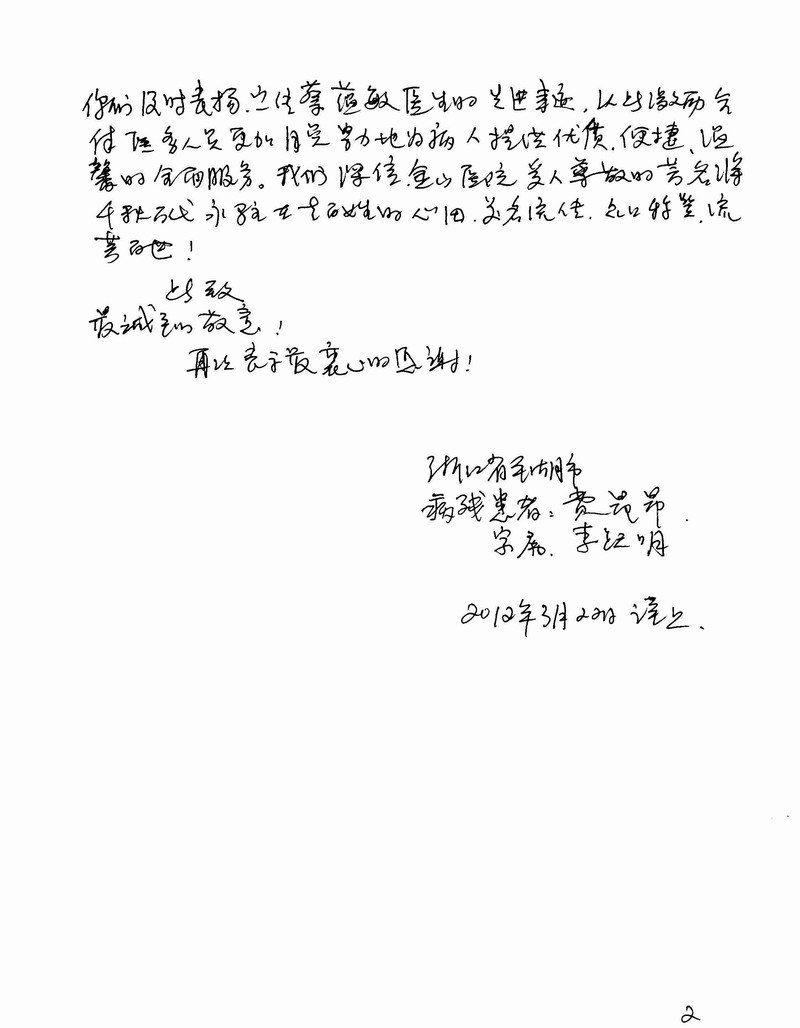 你们及时表扬、宣传蔡蕴敏医生的先进事迹,以此激励全
体医务人员更加自觉努力地为病人提供优质、便捷、温
馨的全面服务。我们深信金山医院受人尊敬的芳名将
千秋万代永驻在老百姓的心田、美名流传、众口称赞、流
芳百世!
此致
最诚至的敬意!
再次表示最衷心的感谢!
浙江省平湖市
病残患者:费昂
家属、李 明
2012年3月22日谨上.
2